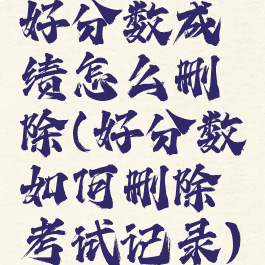 好分数成
绩怎么删
除(好分数
如何删除
考试记录)